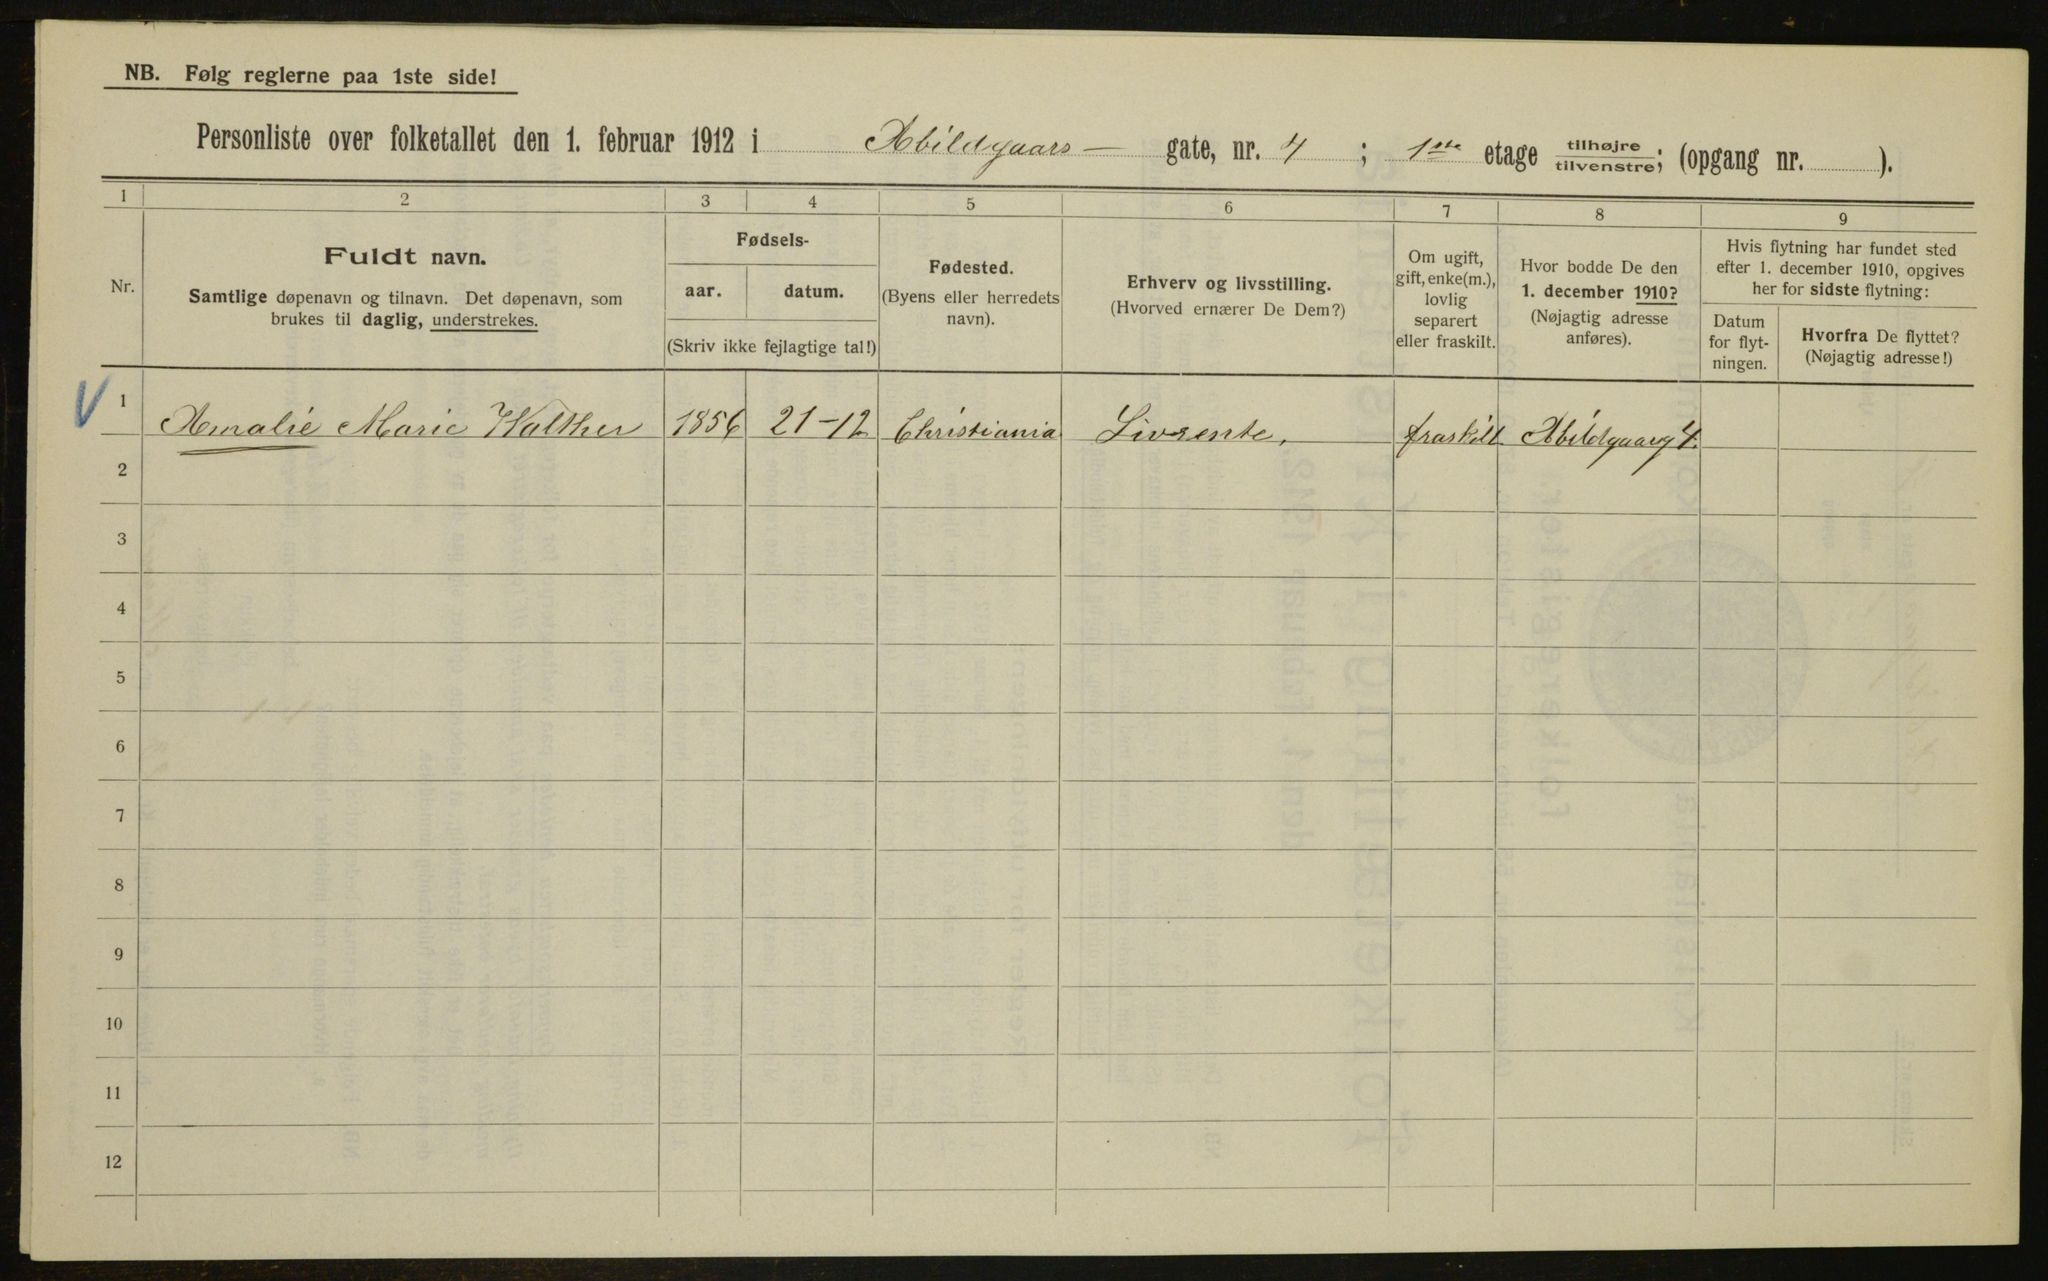 NB. Følg reglerne paa 1ste side!
Personliste over folketallet den 1. februar 1912 i Abildgaars- gate, nr. 4 ; 1ste etage tilhøjre/tilvenstre; (opgang nr. ).
1 2 3 4 5 6 7 8 9
Nr.
Fuldt navn.
Samtlige døpenavn og tilnavn. Det døpenavn, som
brukes til daglig, understrekes.
Fødsels-
aar. datum.
(Skriv ikke fejlagtige tal!)
Fødested.
(Byens eller herredets
navn).
Erhverv og livsstilling.
(Hvorved ernærer De Dem?)
Om ugift,
gift, enke(m.),
lovlig
separert
eller fraskilt.
Hvor bodde De den
1. december 1910?
(Nøjagtig adresse
anføres).
Hvis flytning har fundet sted
efter 1. december 1910, opgives
her for sidste flytning:
Datum
for flyt-
ningen.
Hvorfra De flyttet?
(Nøjagtig adresse!)
1 Amalie Marie Walther 1856 21-12 Christiania Livrente, fraskilt Abildgaarg 4.
2
3
4
5
6
7
8
9
10
11
12